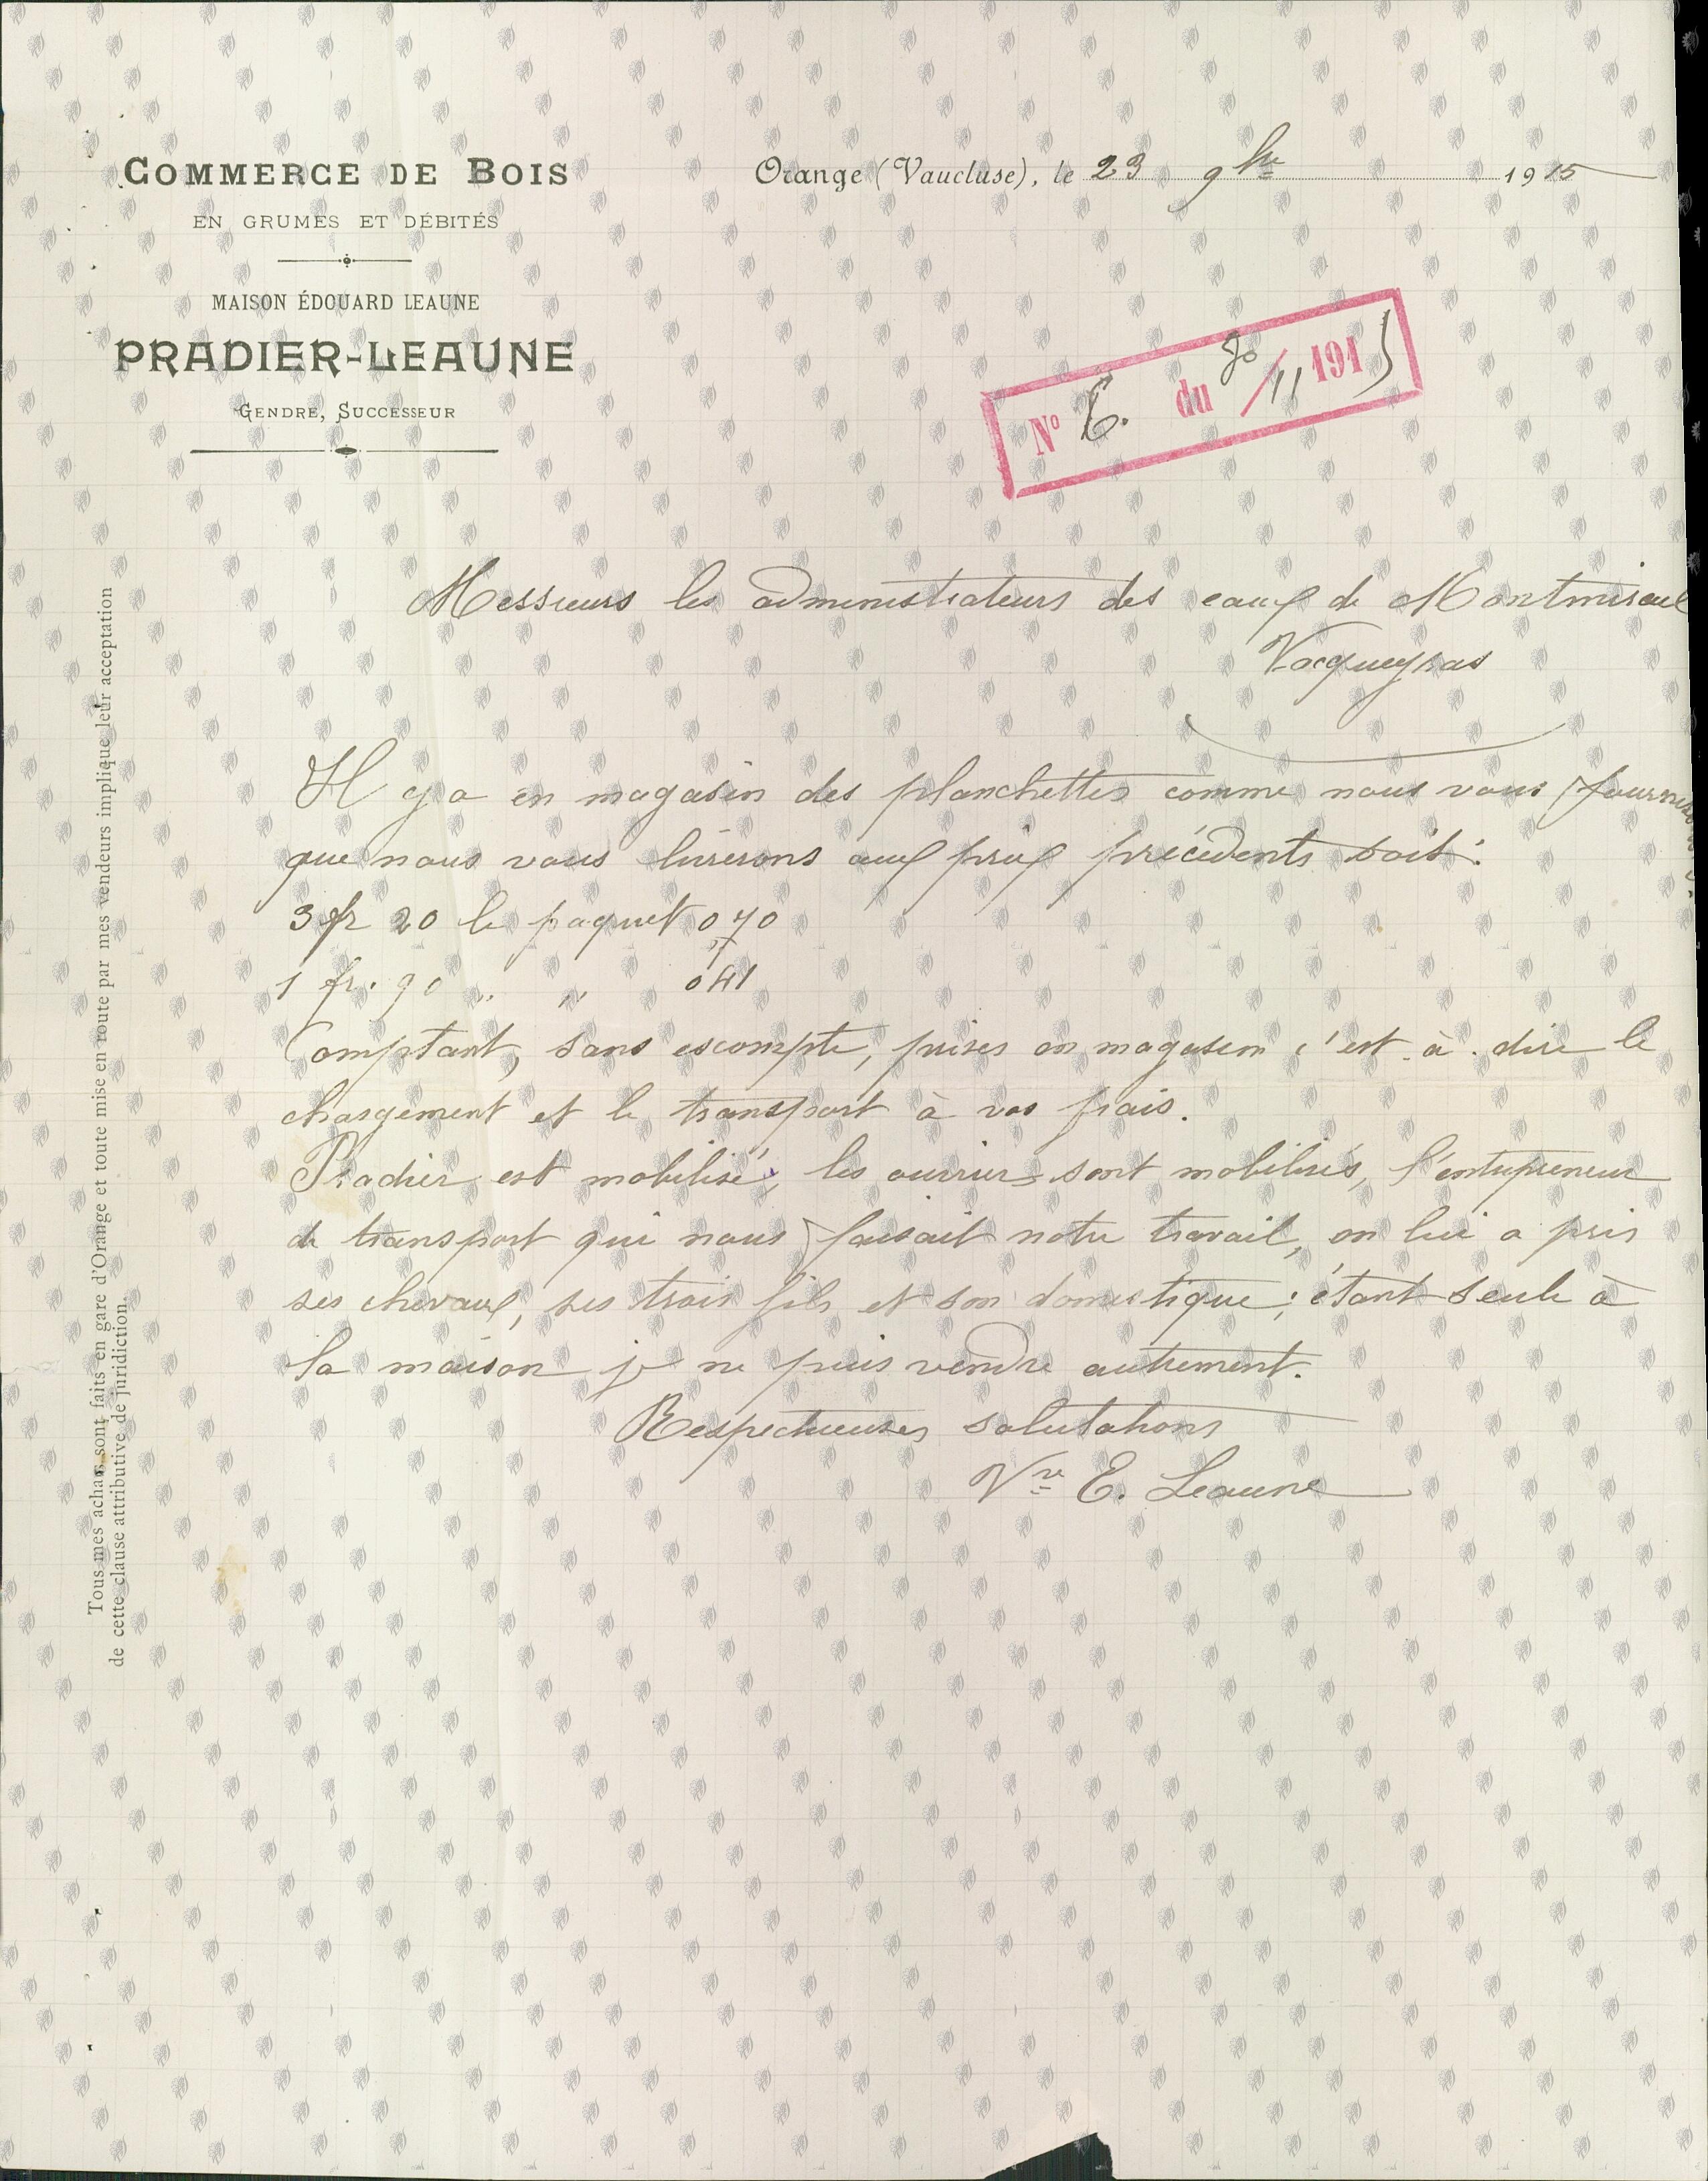 COMMERCE DE BOIS
EN GRUMES ET DÉBITÉS
MAISON ÉDOUARD LEAUNE
PRADIER-LEAUNE
GENDRE, SUCCESSEUR
Orange (Vaucluse), le 23 9bre 1915
N° 6. du 30/11 1915
Messieurs les administrateurs des eaux de Montmirail
Vacqueyras
Il y a en magasin des planchettes comme nous vous fournissons
que nous vous livrerons aux prix précédents soit:
3 fr 20 le paquet 0,70
1 fr. 90 " " 0,41
Comptant, sans escompte, prises en magasin c'est à dire le
chargement et le transport à vos frais.
Pradier est mobilisé, les ouvriers sont mobilisés, l'entrepreneur
de transport qui nous faisait notre travail, on lui a pris
ses chevaux, ses trois fils et son domestique; étant seule à
la maison je ne puis vendre autrement.
Respectueuses salutations
Vve E. Leaune
Tous mes achats sont faits en gare d'Orange et toute mise en route par mes vendeurs implique leur acceptation
de cette clause attributive de juridiction.